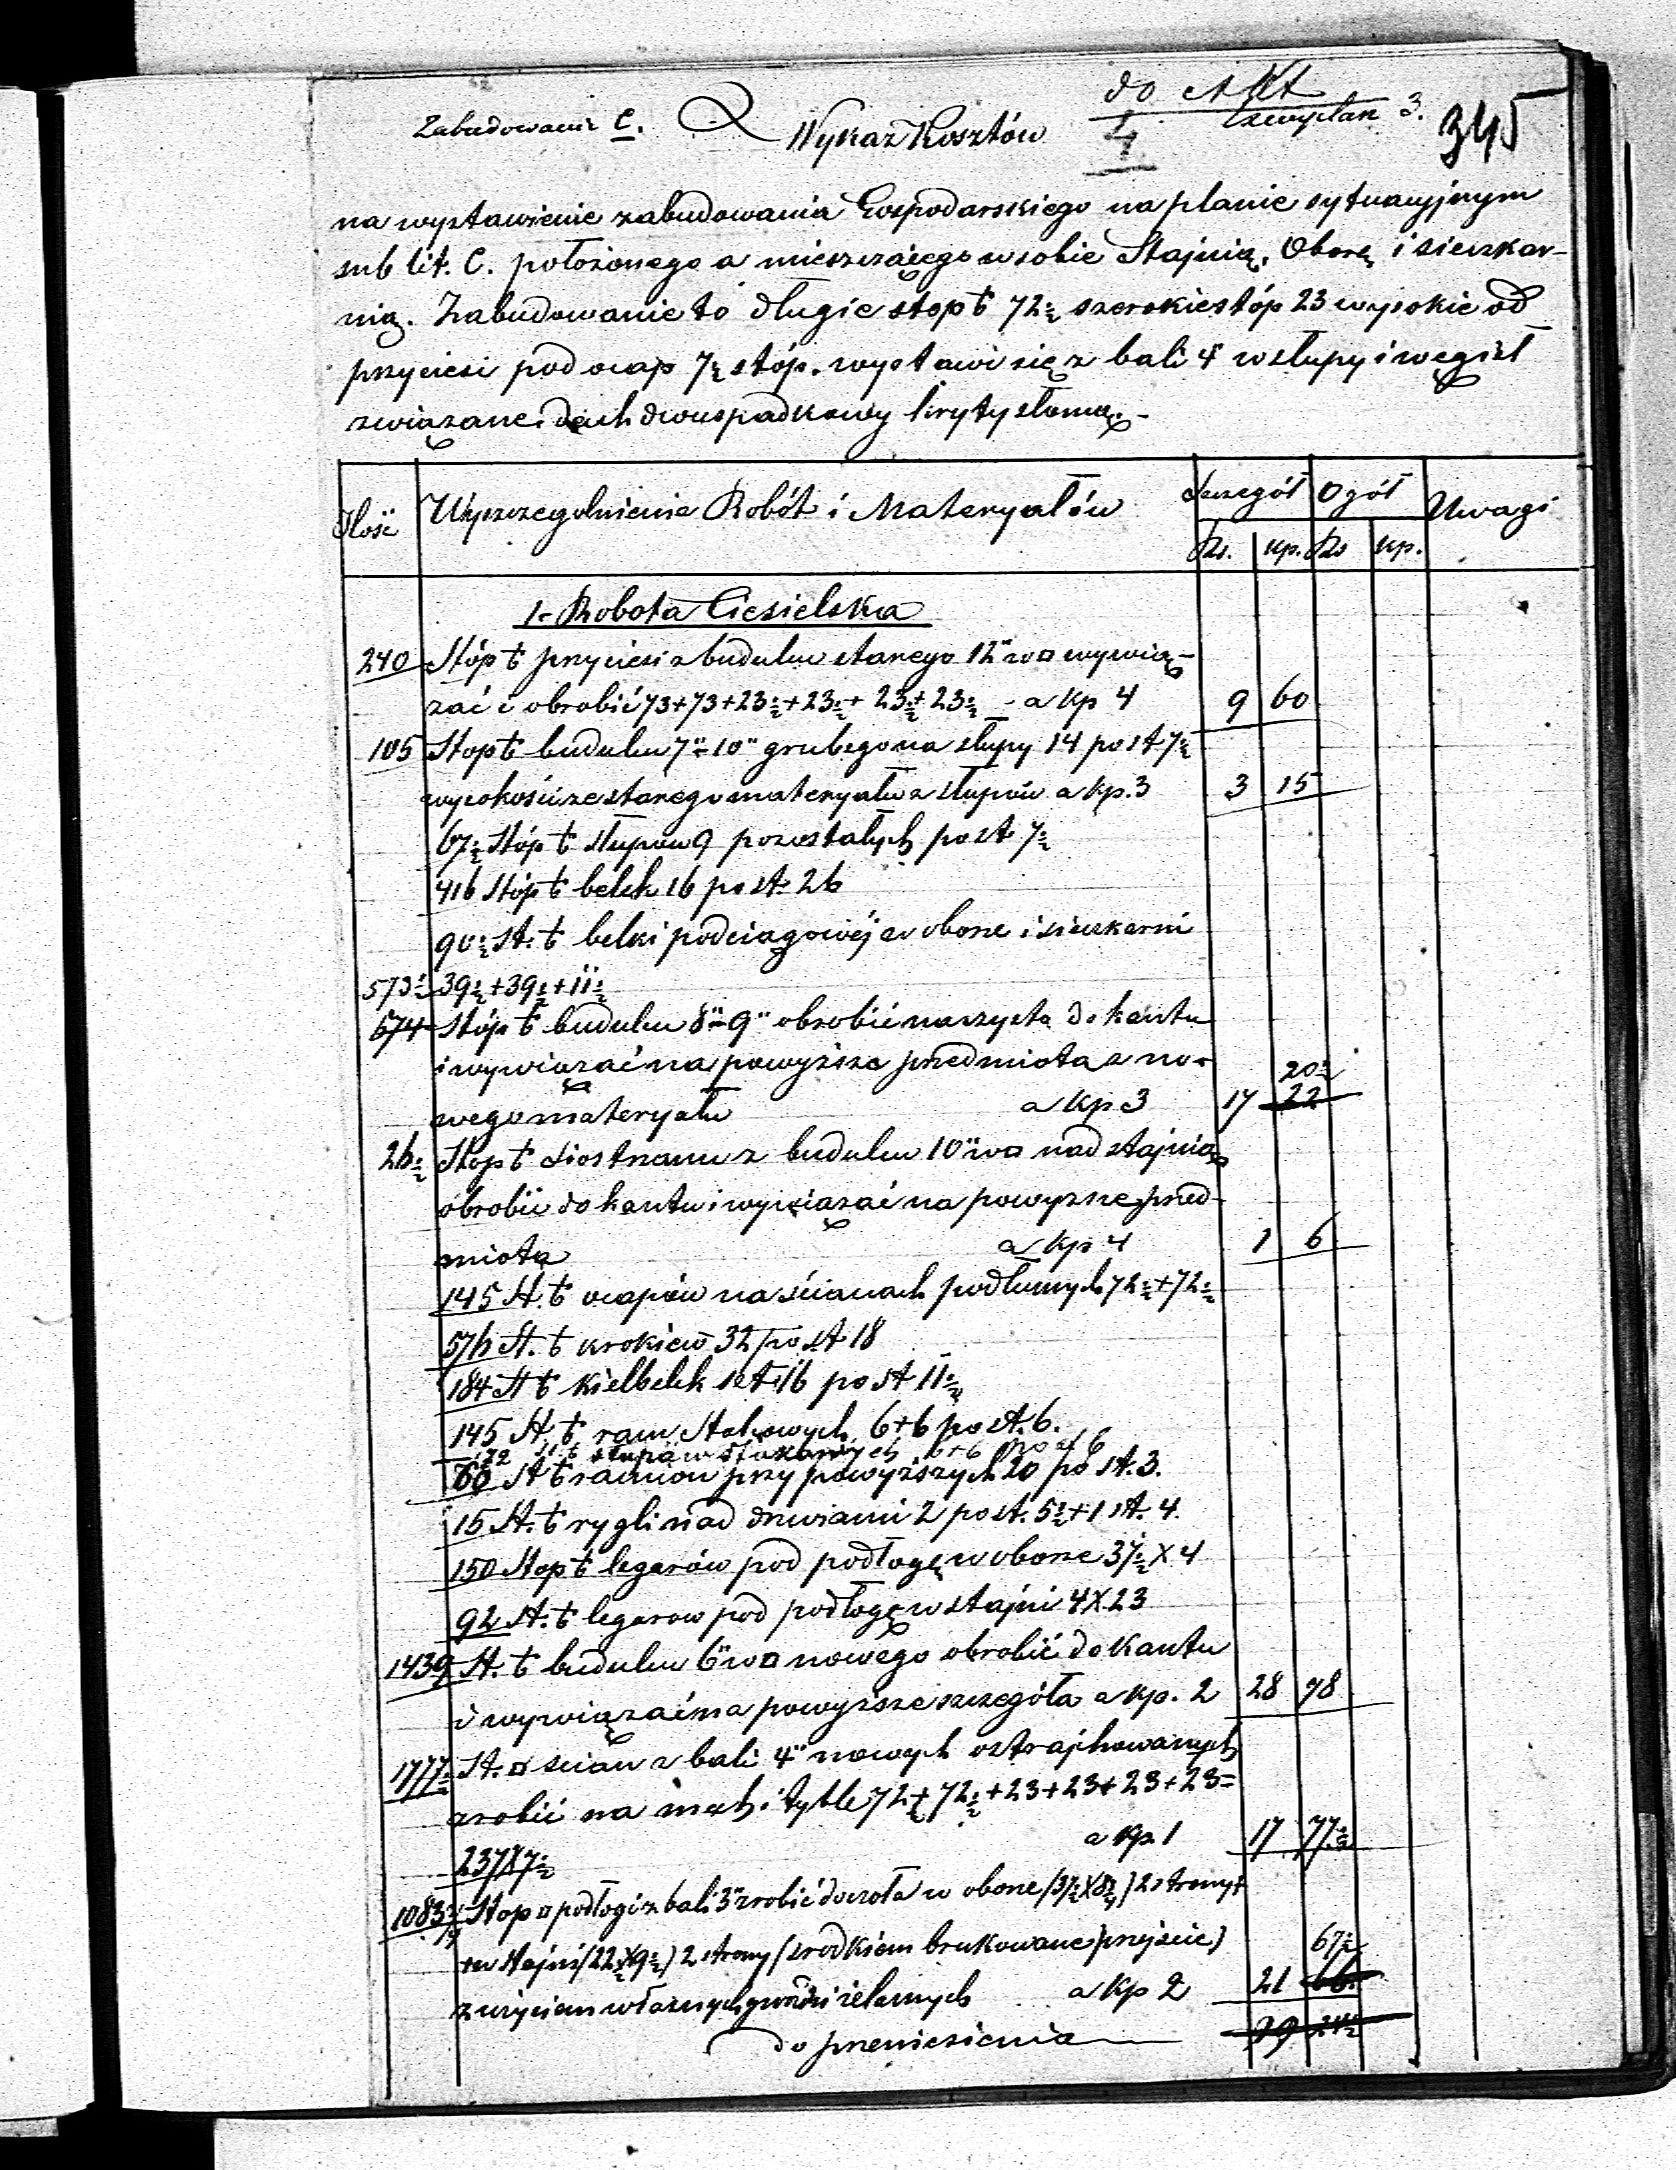 do Akt
Zabudowanie C. Wykaz Kosztów 4 3. 345
na wystawienie zabudowania Gospodarskiego na planie sytuacyjnym
sub lit. C. położonego a mieszczącego w sobie Stajnią, Oborę i sieczkar-
nią. Zabudowanie to długie stop b 72½ szerokie stóp 23 wysokie od
przyciesi pod ocap 7½ stóp. wystawi się z bali 4" w słupy i węgieł
związane. dach dwuspadkowy kryty słomą.-
Ilość Wyszczegolnienie Robót i Materyałów Szczegół Ogół Uwagi
Rs. kp. Rs kp.
1- Robota Ciesielska
240 Stóp b przyciesi z budulcu starego 12" w□ wywią-
zać i obrobić 73+73+23½+23½+23½+23½ - a Kp 4 9 60
105 Stop b budulcu 7"-10" grubego na słupy 14 po st 7½
wysokości ze starego materyału z słupów a kp. 3 3 15
67½ Stóp b słupów 9 pozostałych po st 7½
416 Stóp b belek 16 po st. 26
90½ st. b belki podciągowéj w oborze i sieczkarni
573½ 39½+39½+11½
574 Stóp b budulcu 8"-9" obrobić na czysto do kantu
i wywiązać na powyższe przedmiota z no-
20½
wego materyału a kp 3 17 22
26½ Stop b siostrzanu z budulcu 10" w□ nad stajnią
obrobić do kantu i wywiązać na powyższe przed-
miota a kp 4 1 6
145 St. b ocapów na ścianach podłużnych 72½+72½
576 St. b krokiew 32 po st 18
184 St b kielbelek szt 16 po st 11½
145 St. b ram Stolcowych
72 st b słupów stolcowych 6+6 po st 6
60 St b po st. 3.
15 St. b rygli nad drzwiami 2 po st. 5½+1 st. 4.
150 Stop b legarów pod podłogę w oborze 37½ X 4
92 St. b legarow pod podłogę w stajni 4X23
1439 St. b budulcu 6" w□ nowego obrobić do Kantu
i wywiązać na powyższe szczegóła a kp. 2 28 78
1777½ St. □ ścian z bali 4" nowych ostrajhowanych
zrobić na mech i tyble 72½+72½+23+23+23+23=
237X7½ a Kp. 1 17 77½
1083¾ Stop □ podłogi z bali 3" zrobić do czoła w oborze (37½X8¾) 2 strony+
+w stajni (22½X9½) 2 strony (środkiem brukowane przejście) 67½
z użyciem własnych gwoździ żelaznych a kp 2 21 66.
do przeniesienia 99 24½